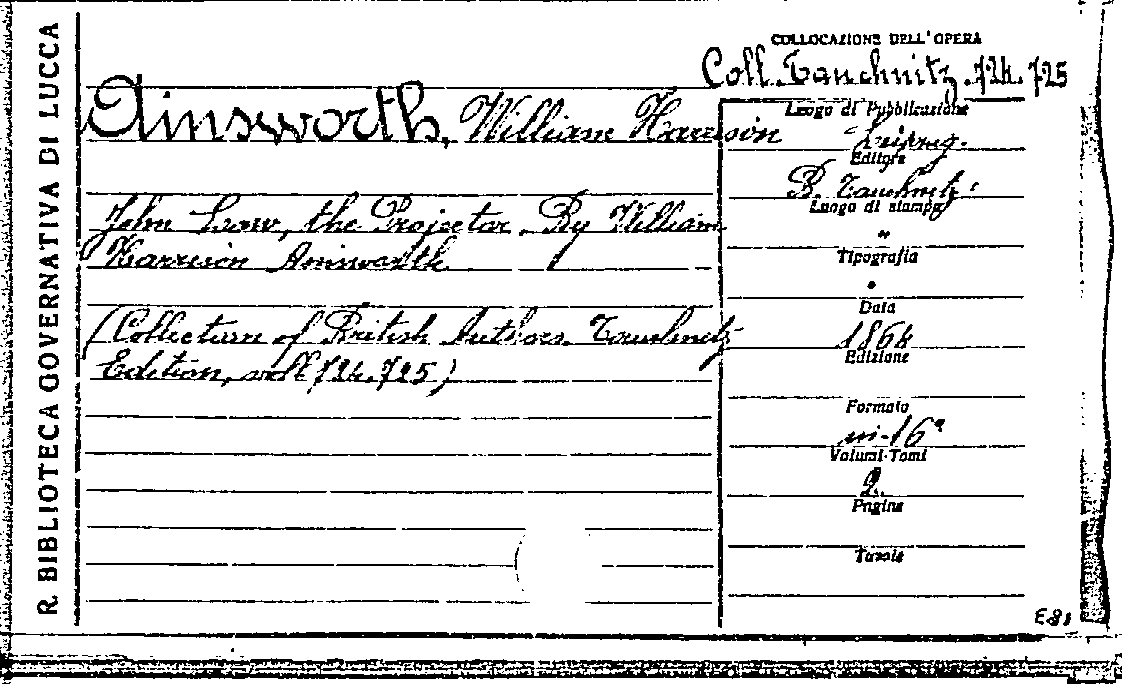 R. BIBLIOTECA GOVERNATIVA DI LUCCA
COLLOCAZIONE DELL'OPERA
Coll. Tauchnitz. 724. 725
Ainsworth, William Harrison
John Law, the Projector. By William
Harrison Ainsworth
(Collection of British Authors. Tauchnitz
Edition, voll 724. 725)
Luogo di Pubblicazione
Leipzig.
Editore
B. Tauchnitz.
Luogo di stampa
"
Tipografia
"
Data
1864
Edizione
Formato
in-16°
Volumi-Tomi
2.
Pagine
Tavole
E81